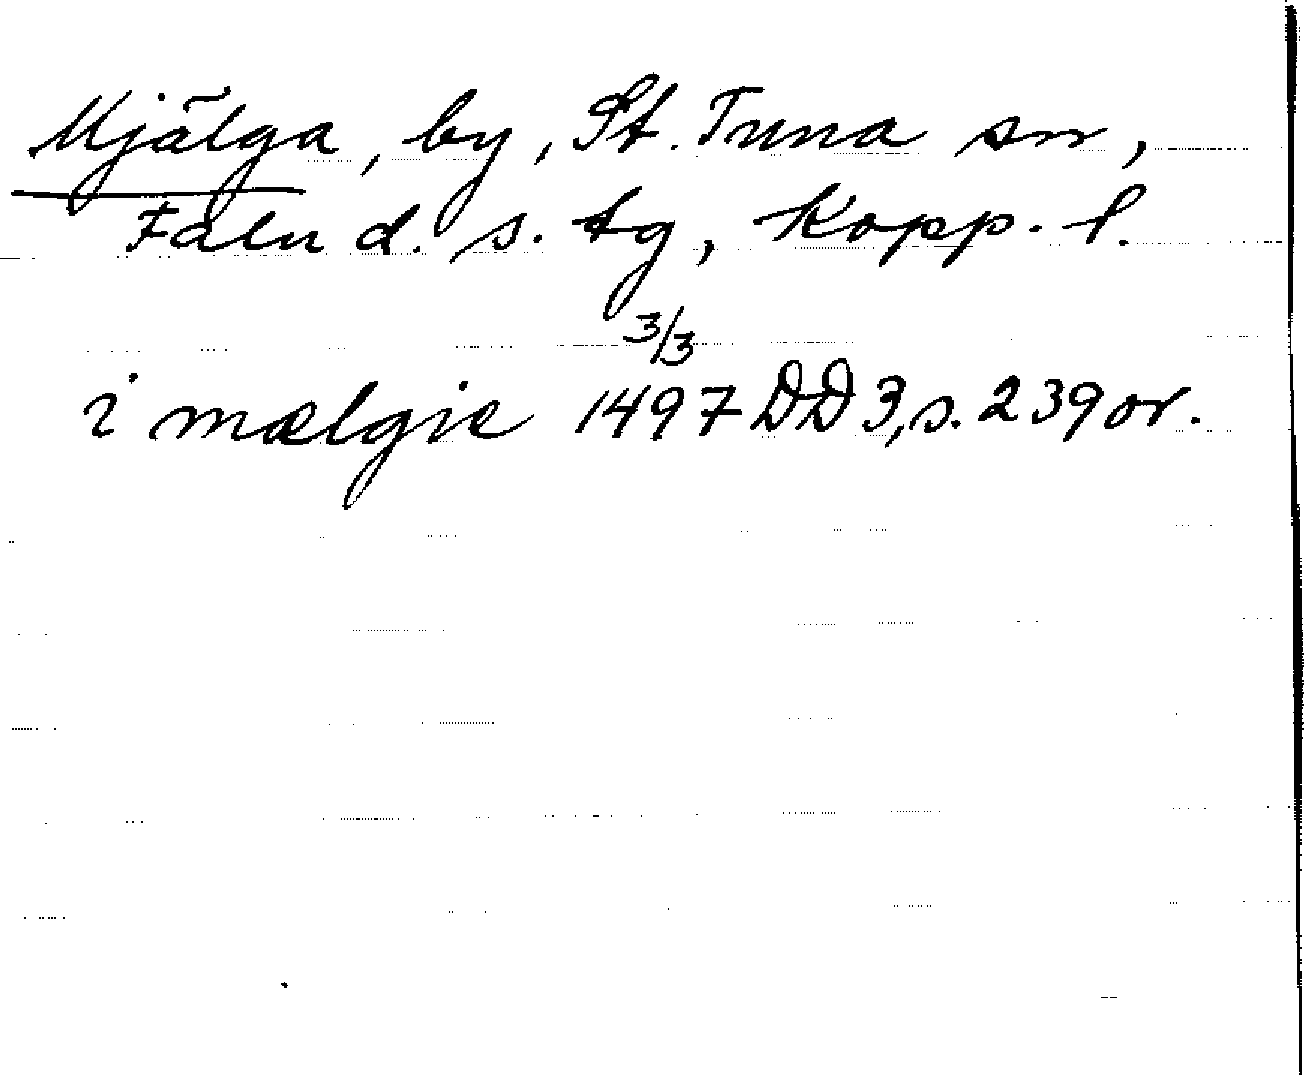 Mjälga, by, St. Tuna sn,
Falu d. s. tg, Kopp. l.
i mælgie 3/3 1497 DD 3, s. 239 or.